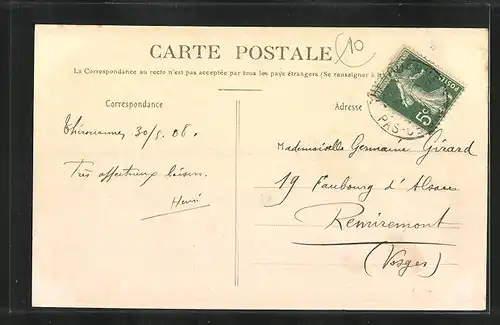 CARTE POSTALE
10
La Correspondance au recto n'est pas acceptée par tous les pays étrangers (Se renseigner à
Correspondance
Adresse
POSTES
5c
PAS-
30/8. 08.
Très affectueux baisers.
Henri
Mademoiselle Germaine Girard
19 Faubourg d'Alsace
Remiremont
(Vosges)